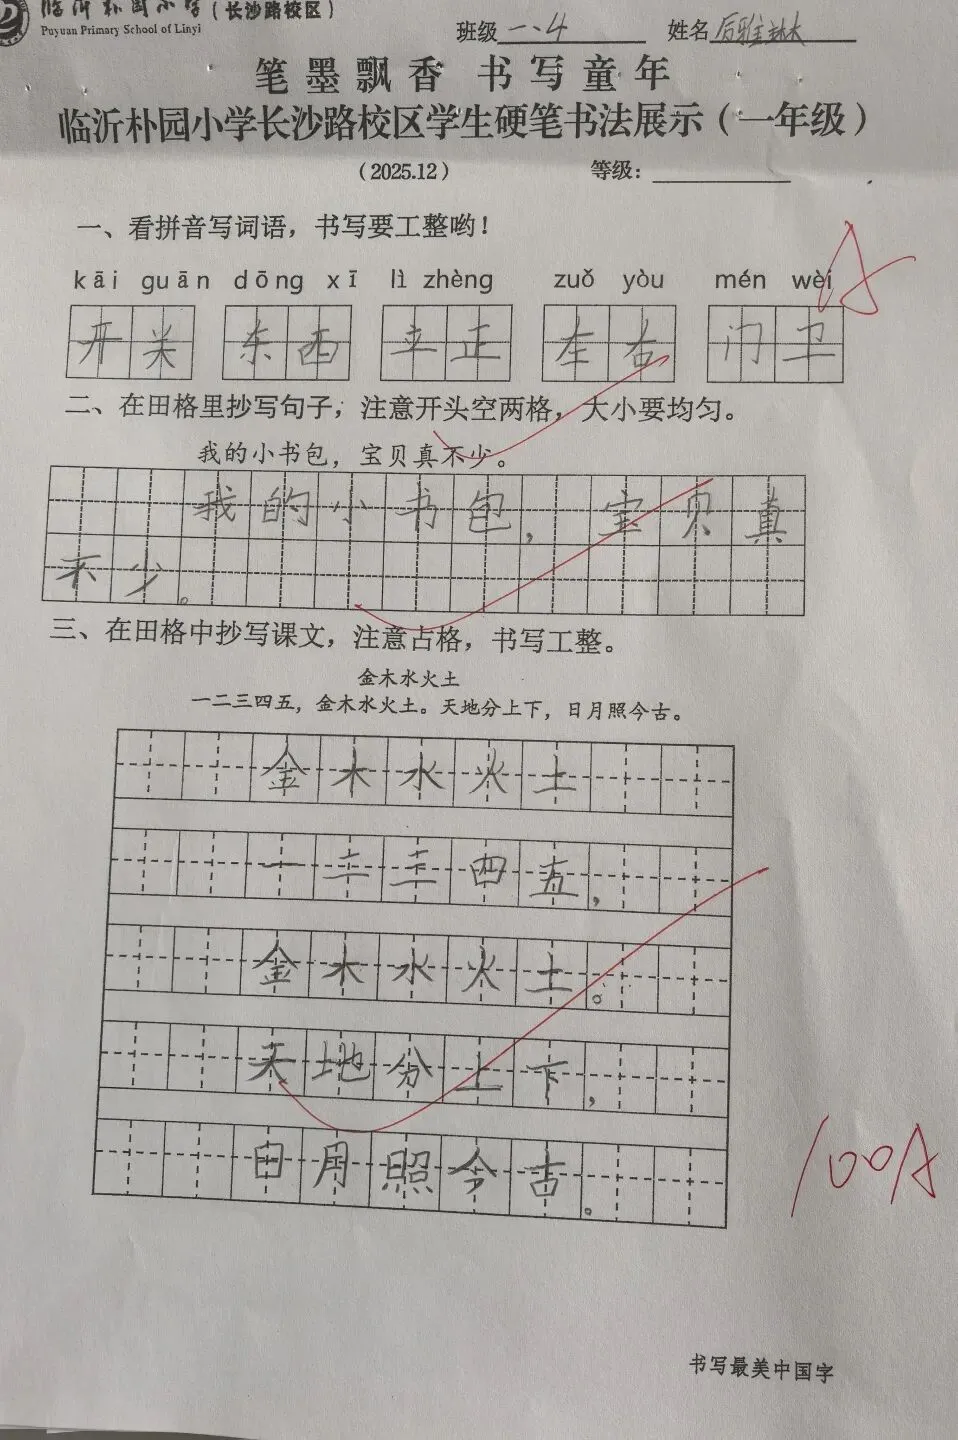 临沂朴园小学（长沙路校区）
Puyuan Primary School of Linyi
班级 一、4 姓名
笔墨飘香 书写童年
临沂朴园小学长沙路校区学生硬笔书法展示（一年级）
（2025.12） 等级：
A
一、看拼音写词语，书写要工整哟！
kāi guān dōng xī lì zhèng zuǒ yòu mén wèi
开关 东西 立正 左右 门卫
二、在田格里抄写句子，注意开头空两格，大小要均匀。
我的小书包，宝贝真不少。
我的小书包，宝贝真
不少。
三、在田格中抄写课文，注意占格，书写工整。
金木水火土
一二三四五，金木水火土。天地分上下，日月照今古。
金木水火土
一二三四五，
金木水火土。
天地分上下，
日月照今古。
100A
书写最美中国字